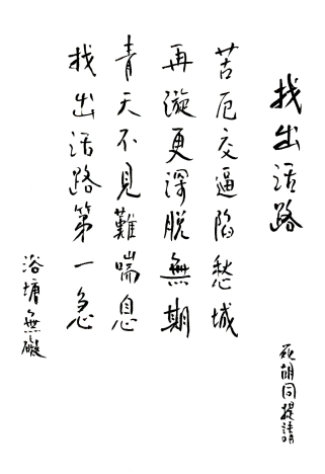 找出活路
死胡同提請
苦厄交逼陷愁城
再漩更深脱無期
青天不見難喘息
找出活路第一急
浴塘無礙